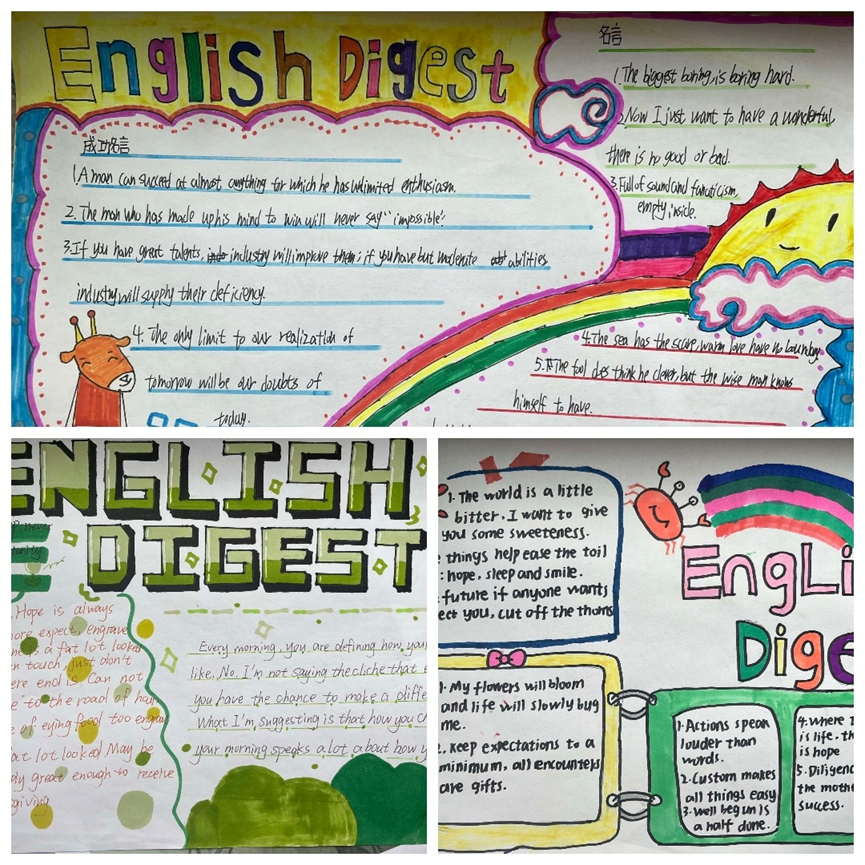 English Digest
成功名言
1.A man can succeed at almost anything for which he has unlimited enthusiasm.
2. The man who has made up his mind to win will never say "impossible".
3.If you have great talents, industry will improve them; if you have but moderate abilities
industry will supply their deficiency.
4. The only limit to our realization of
tomorrow will be our doubts of
today.
名言
1.The biggest boring is boring hard.
2.Now I just want to have a wonderful,
there is no good or bad.
3.Full of sound and fanaticism,
empty inside.
4.The sea has the scure, warm love have no boundary.
5.The fool does think he clever, but the wise man knows
himself to have.
ENGLISH
DIGEST
Hope is always
more expect, engrave
is a fat lot looked
touch, just don't
ere end is. Can not
to the road of
of eying food too
at lot looked May be
dy great enough to receive
giving
Every morning, you are defining how your
like. No. I'm not saying the cliche that
you have the chance to make a diffe
What I'm suggesting is that how you c
your morning speaks a lot about how y
1. The world is a little
bitter. I want to give
you some sweeteness.
things help ease the toil
: hope, sleep and smile.
future if anyone wants
ect you, cut off the thorns
1. My flowers will bloom
and life will slowly bug
me.
2. Keep expectations to a
minimum, all encounters
are gifts.
EngLi
Dige
1.Actions speak
louder than
words.
2.Custom makes
all things easy
3.Well begun is
a half done.
4.Where t
is life, th
is hope
5.Diligenc
the mothe
success.